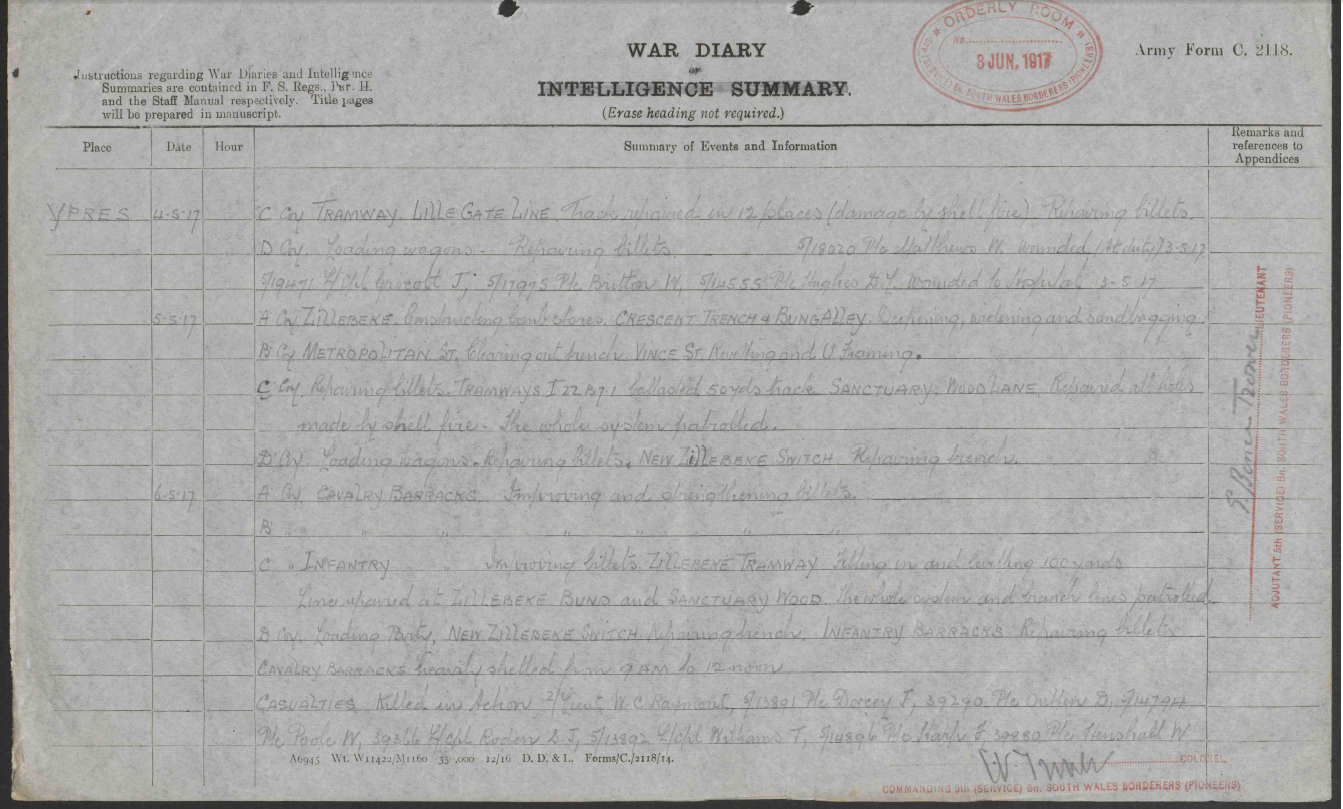 WAR DIARY
or
INTELLIGENCE SUMMARY.
(Erase heading not required.)
Army Form C. 2118.
Instructions regarding War Diaries and Intelligence
Summaries are contained in F. S. Regs., Part II.
and the Staff Manual respectively. Title pages
will be prepared in manuscript.
ORDERLY ROOM
No.
3 JUN. 1917
5TH (SERVICE) Bn. SOUTH WALES BORDERERS (PIONEERS)
Place Date Hour Summary of Events and Information Remarks and references to Appendices
YPRES 4-5-17 C Coy TRAMWAY. LILLE GATE LINE. Track repaired in 12 places (damage by shell fire). Repairing billets
D Coy. Loading wagons - Repairing billets. 5/18020 Pte Matthews W. Wounded (At duty) 3-5-17
5/19471 L/Cpl J, 5/17975 Pte Britton W, 5/14555 Pte Hughes D.J. Wounded to Hospital 3-5-17
5-5-17 A Coy ZILLEBEKE. Constructing bomb stores. CRESCENT TRENCH & BUNGALLEY. Deepening, widening and sandbagging
B Coy METROPOLITAN ST. Clearing out trench. VINCE ST. Revetting and U Framing.
C Coy Repairing billets. TRAMWAYS I 22 B 7.1 ballasted 50 yds track SANCTUARY. WOOD LANE. Repaired all holes
made by shell fire - The whole system patrolled.
D Coy Loading wagons - Repairing billets. NEW ZILLEBEKE SWITCH Repairing trench.
6-5-17 A Coy CAVALRY BARRACKS. Improving and strengthening billets.
B " " " " " " "
C " INFANTRY " Improving billets. ZILLEBEKE TRAMWAY. Filling in and levelling 100 yards
Line repaired at ZILLEBEKE BUND and SANCTUARY WOOD. The whole system and branch lines patrolled.
D Coy. Loading Party, NEW ZILLEBEKE SWITCH. Repairing trench. INFANTRY BARRACKS Repairing billets
CAVALRY BARRACKS heavily shelled from 9 AM to 12 noon
CASUALTIES. Killed in Action 2/Lieut W. C. Raymont, 5/13891 Pte Dorcey J, 39290 Pte Outten D, 5/14794
Pte Poole W, 39366 L/Cpl Roden S. J, 5/13892 L/Cpl Williams T, 5/14896 Pte Sharp F 39880 Pte Henshall W
A6945 Wt. W11422/M1160 35,000 12/16 D. D. & L. Forms/C./2118/14.
COLONEL
COMMANDING 5th (SERVICE) Bn. SOUTH WALES BORDERERS (PIONEERS)
LIEUTENANT
ADJUTANT 5th (SERVICE) Bn. SOUTH WALES BORDERERS (PIONEERS)